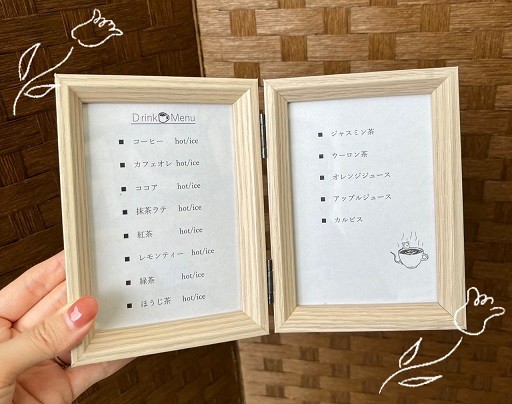 Drink Menu
■ コーヒー hot/ice
■ カフェオレ hot/ice
■ ココア hot/ice
■ 抹茶ラテ hot/ice
■ 紅茶 hot/ice
■ レモンティー hot/ice
■ 緑茶 hot/ice
■ ほうじ茶 hot/ice
■ ジャスミン茶
■ ウーロン茶
■ オレンジジュース
■ アップルジュース
■ カルピス